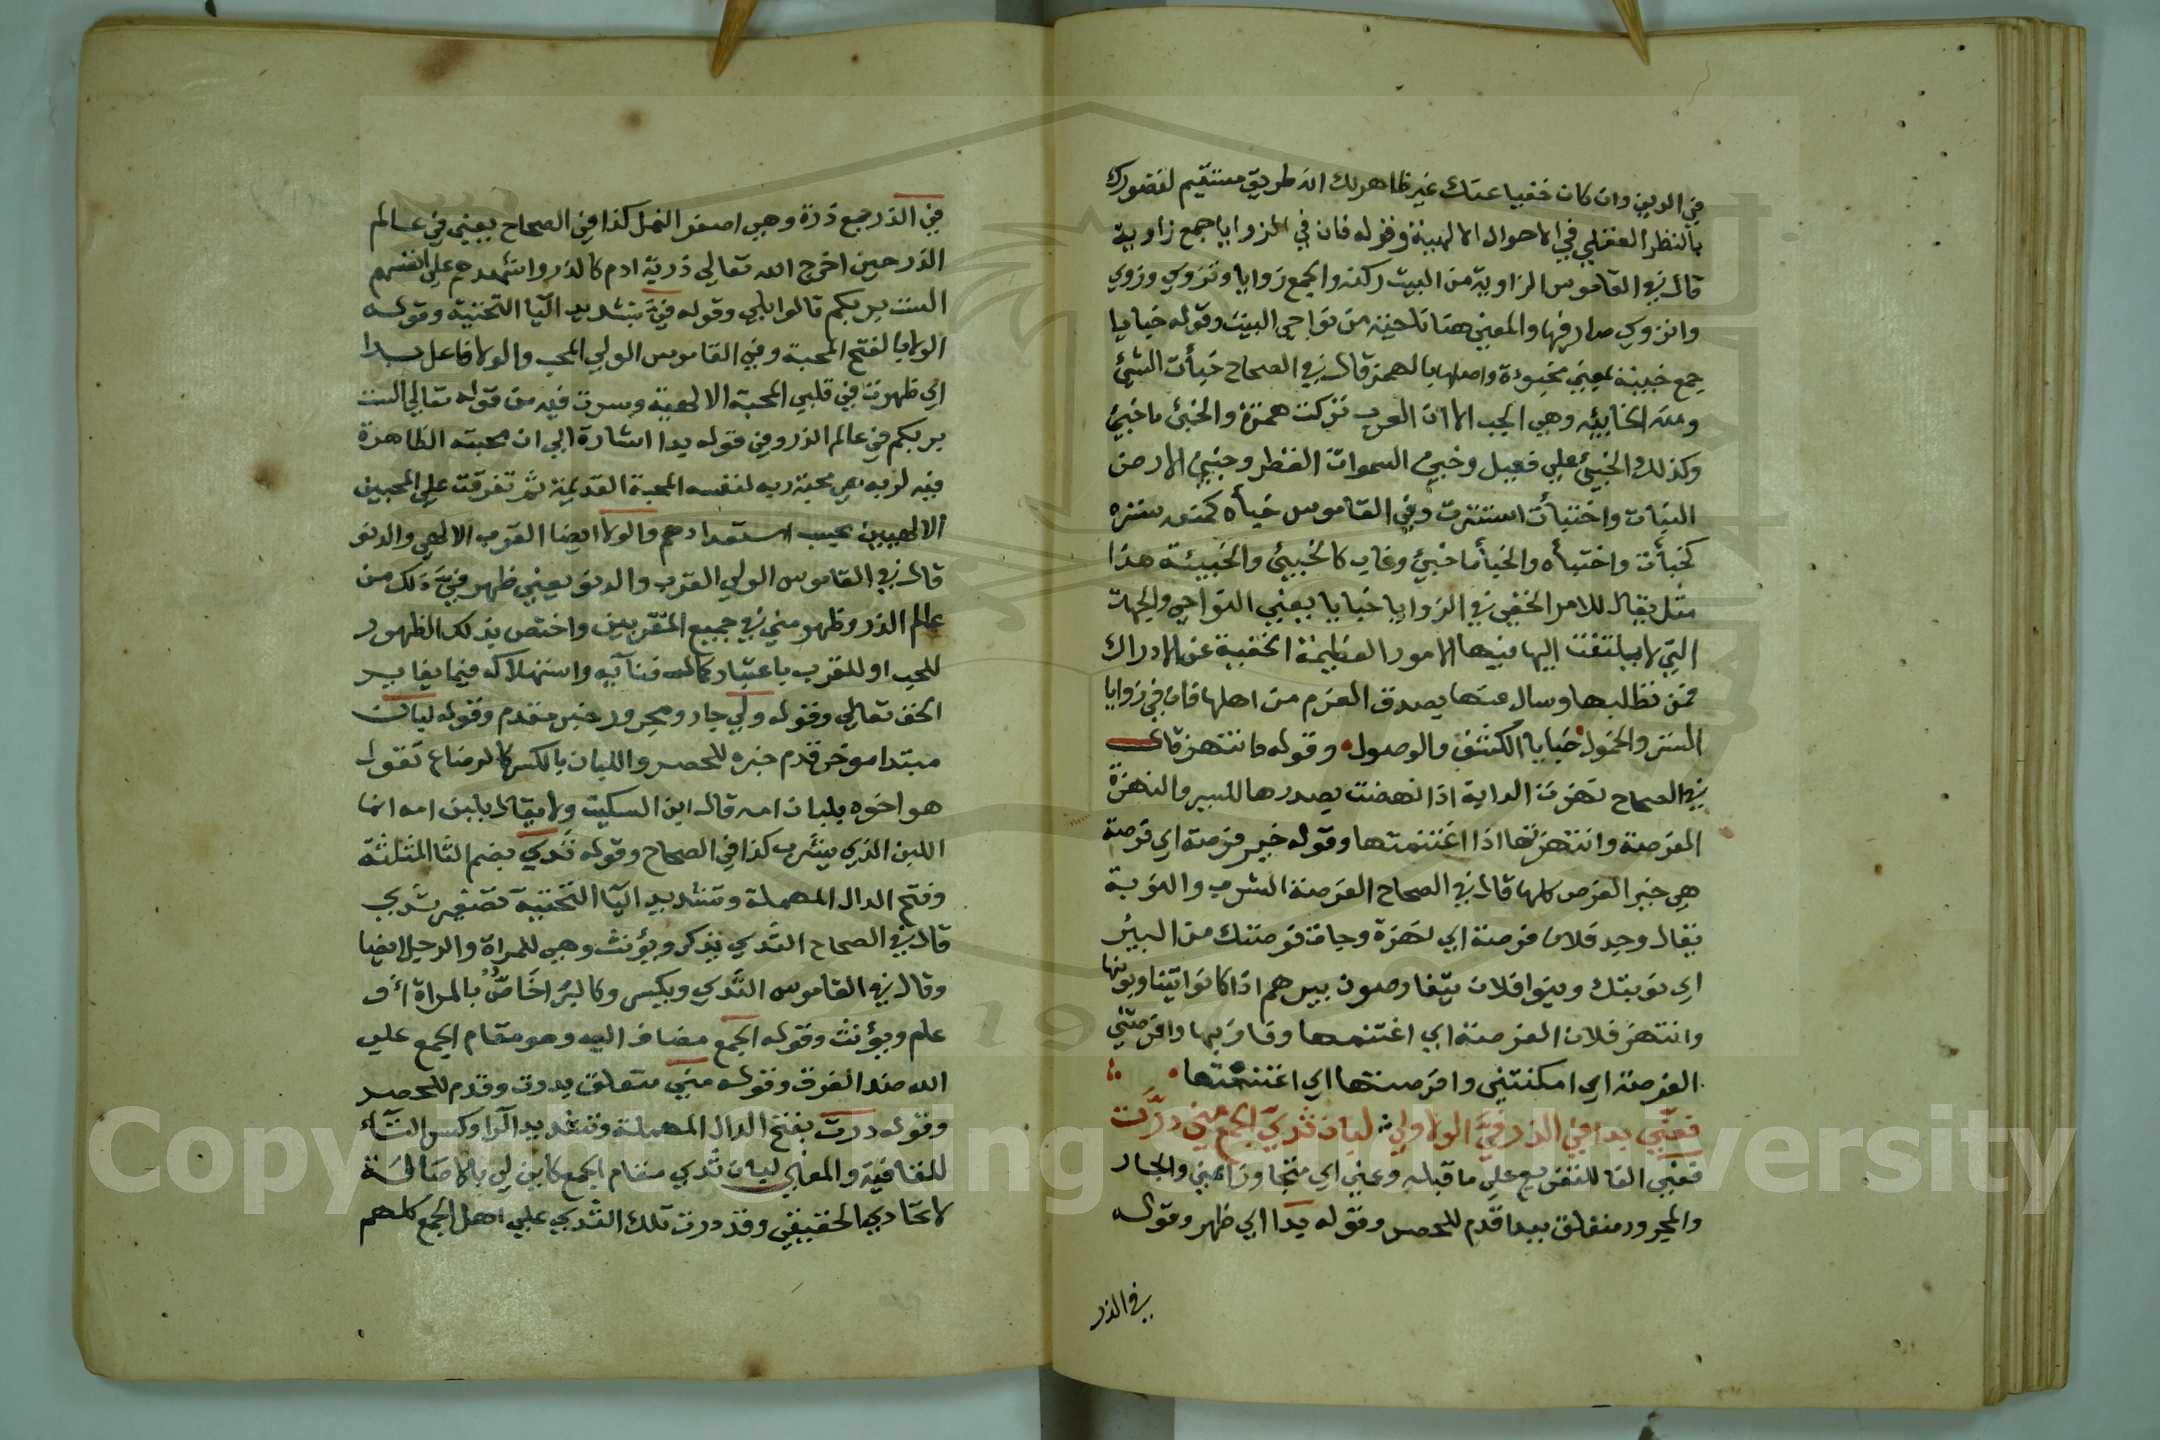 في الدين وان كان خفيا عنك غير ظاهر لك انه طريق مستقيم لقصورك
بالنظر العقلي في الاحوال الالهية وقوله فان في الزوايا جمع زاوية
قال في القاموس الزاوية من البيت ركنه والجمع زوايا وتزوي وزوي
وانزوي صار فيها والمعني هنا ناحية من نواحي البيت وقوله خبايا
جمع خبيئة بمعني مخبوءة واصلها بالهمز قال في الصحاح خبأت الشئ
ومنه الخابيئه وهي الجب الا ان العرب تركت همزة والخبئ ما خبئ
وكذلك الخبيئ علي فعيل وخبئ السموات القطر وخبئ الارض
النبات واختبأت استترت وفي القاموس خبأه كمنعه ستره
كخبأت واختبأه والخبأ ما خبئ وغاب كالخبيئ والخبيئة هذا
مثل يقال للامر الخفي في الزوايا خبايا بمعني النواحي والجهات
التي لا يلتفت اليها فيها الامور العظيمة الخفية عن الادراك
فمن تطلبها وسال عنها يصدق العزم من اهلها فان في زوايا
الستر والخمول خبايا الكشف والوصول وقوله فانتهز قال
في الصحاح نهزت الداية اذا نهضت بصدرها للسير والنهزة
الفرصة وانتهزتها اذا اغتنمتها وقوله خير فرصة اي فرصة
هي خير الفرص كلها قال في الصحاح الفرصة الشرب والنوبة
يقال وجد فلان فرصة اي نهزة وجاءت فرصتك من البئر
اي نوبتك وبنوا فلان يتفارصون بيرهم اذا كانوا يتناوبونها
وانتهز فلان الفرصة اي اغتنمها وفاز بها وافرصتني
الفرصة اي امكنتني وافترصتها اي اغتنمتها
فعنّي بدا في الذر فيّ الولا ولي لبان ثديّ الجمع مني درّت
فعنّي الفا للتفريع علي ما قبله وعني اي متجاوزا عني والجار
والمجرور متعلق ببدا قدم للحصر وقوله بدا اي ظهر وقوله
في الذر
في الذر جمع ذرة وهي اصغر النمل كذا في الصحاح يعني في عالم
الذر حين اخرج الله تعالي ذرية ادم كالذر واشهدهم علي انفسهم
الست بربكم قالوا بلي وقوله فيّ بتشديد اليا التحتية وقوله
الولا بالفتح المحبة وفي القاموس الولي المحب والولا فاعل بدا
اي ظهرت في قلبي المحبة الالهية وسرت فيه من قوله تعالي الست
بربكم في عالم الذر وفي قوله بدا اشارة الي ان محبته الظاهرة
فيه لربه هي محبة ربه لنفسه المحبة القديمة ثم تفرقت علي المحبين
الالهيين بحسب استعدادهم والولا ايضا القرب الالهي والدنو
قال في القاموس الولي القرب والدنو يعني ظهر فيّ ذلك من
عالم الذر وظهر مني في جميع المقربين واختص بذلك الظهور
للمحب او للمقرب باعتبار كماله فنآيه واستهلاكه فيما يغاير
الحق تعالي وقوله ولي جار ومجرور خبر مقدم وقوله لبان
مبتدا موخر قدم خبره للحصر واللبان بالكسر كالرضاع تقول
هو اخوه بلبان امه قال ابن السكيت ولا يقال بلبن امه انما
اللبن الذي يشرب كذا في الصحاح وقوله ثدي بضم الثا المثلثة
وفتح الدال المهملة وتشديد اليآ التحتية تصغير ثدي
قال في الصحاح الثدي يذكر ويؤنث وهي للمراة والرجل ايضا
وقال في القاموس الثدي ويكسر وكالثرا خاصّ بالمراة او
عام ويؤنث وقوله الجمع مضاف اليه وهو مقام الجمع علي
الله ضد الفرق وقوله منّي متعلق بدرت وقدم للحصر
وقوله درت بفتح الدال المهملة وتشديد الرآ وكسر التآء
للقافية والمعني لبان ثدي مقام الجمع كاين لي بالاصالة
لاتحادي الحقيقي وقد درت تلك الثدي علي اهل الجمع كلهم
Copyright © King Saud University